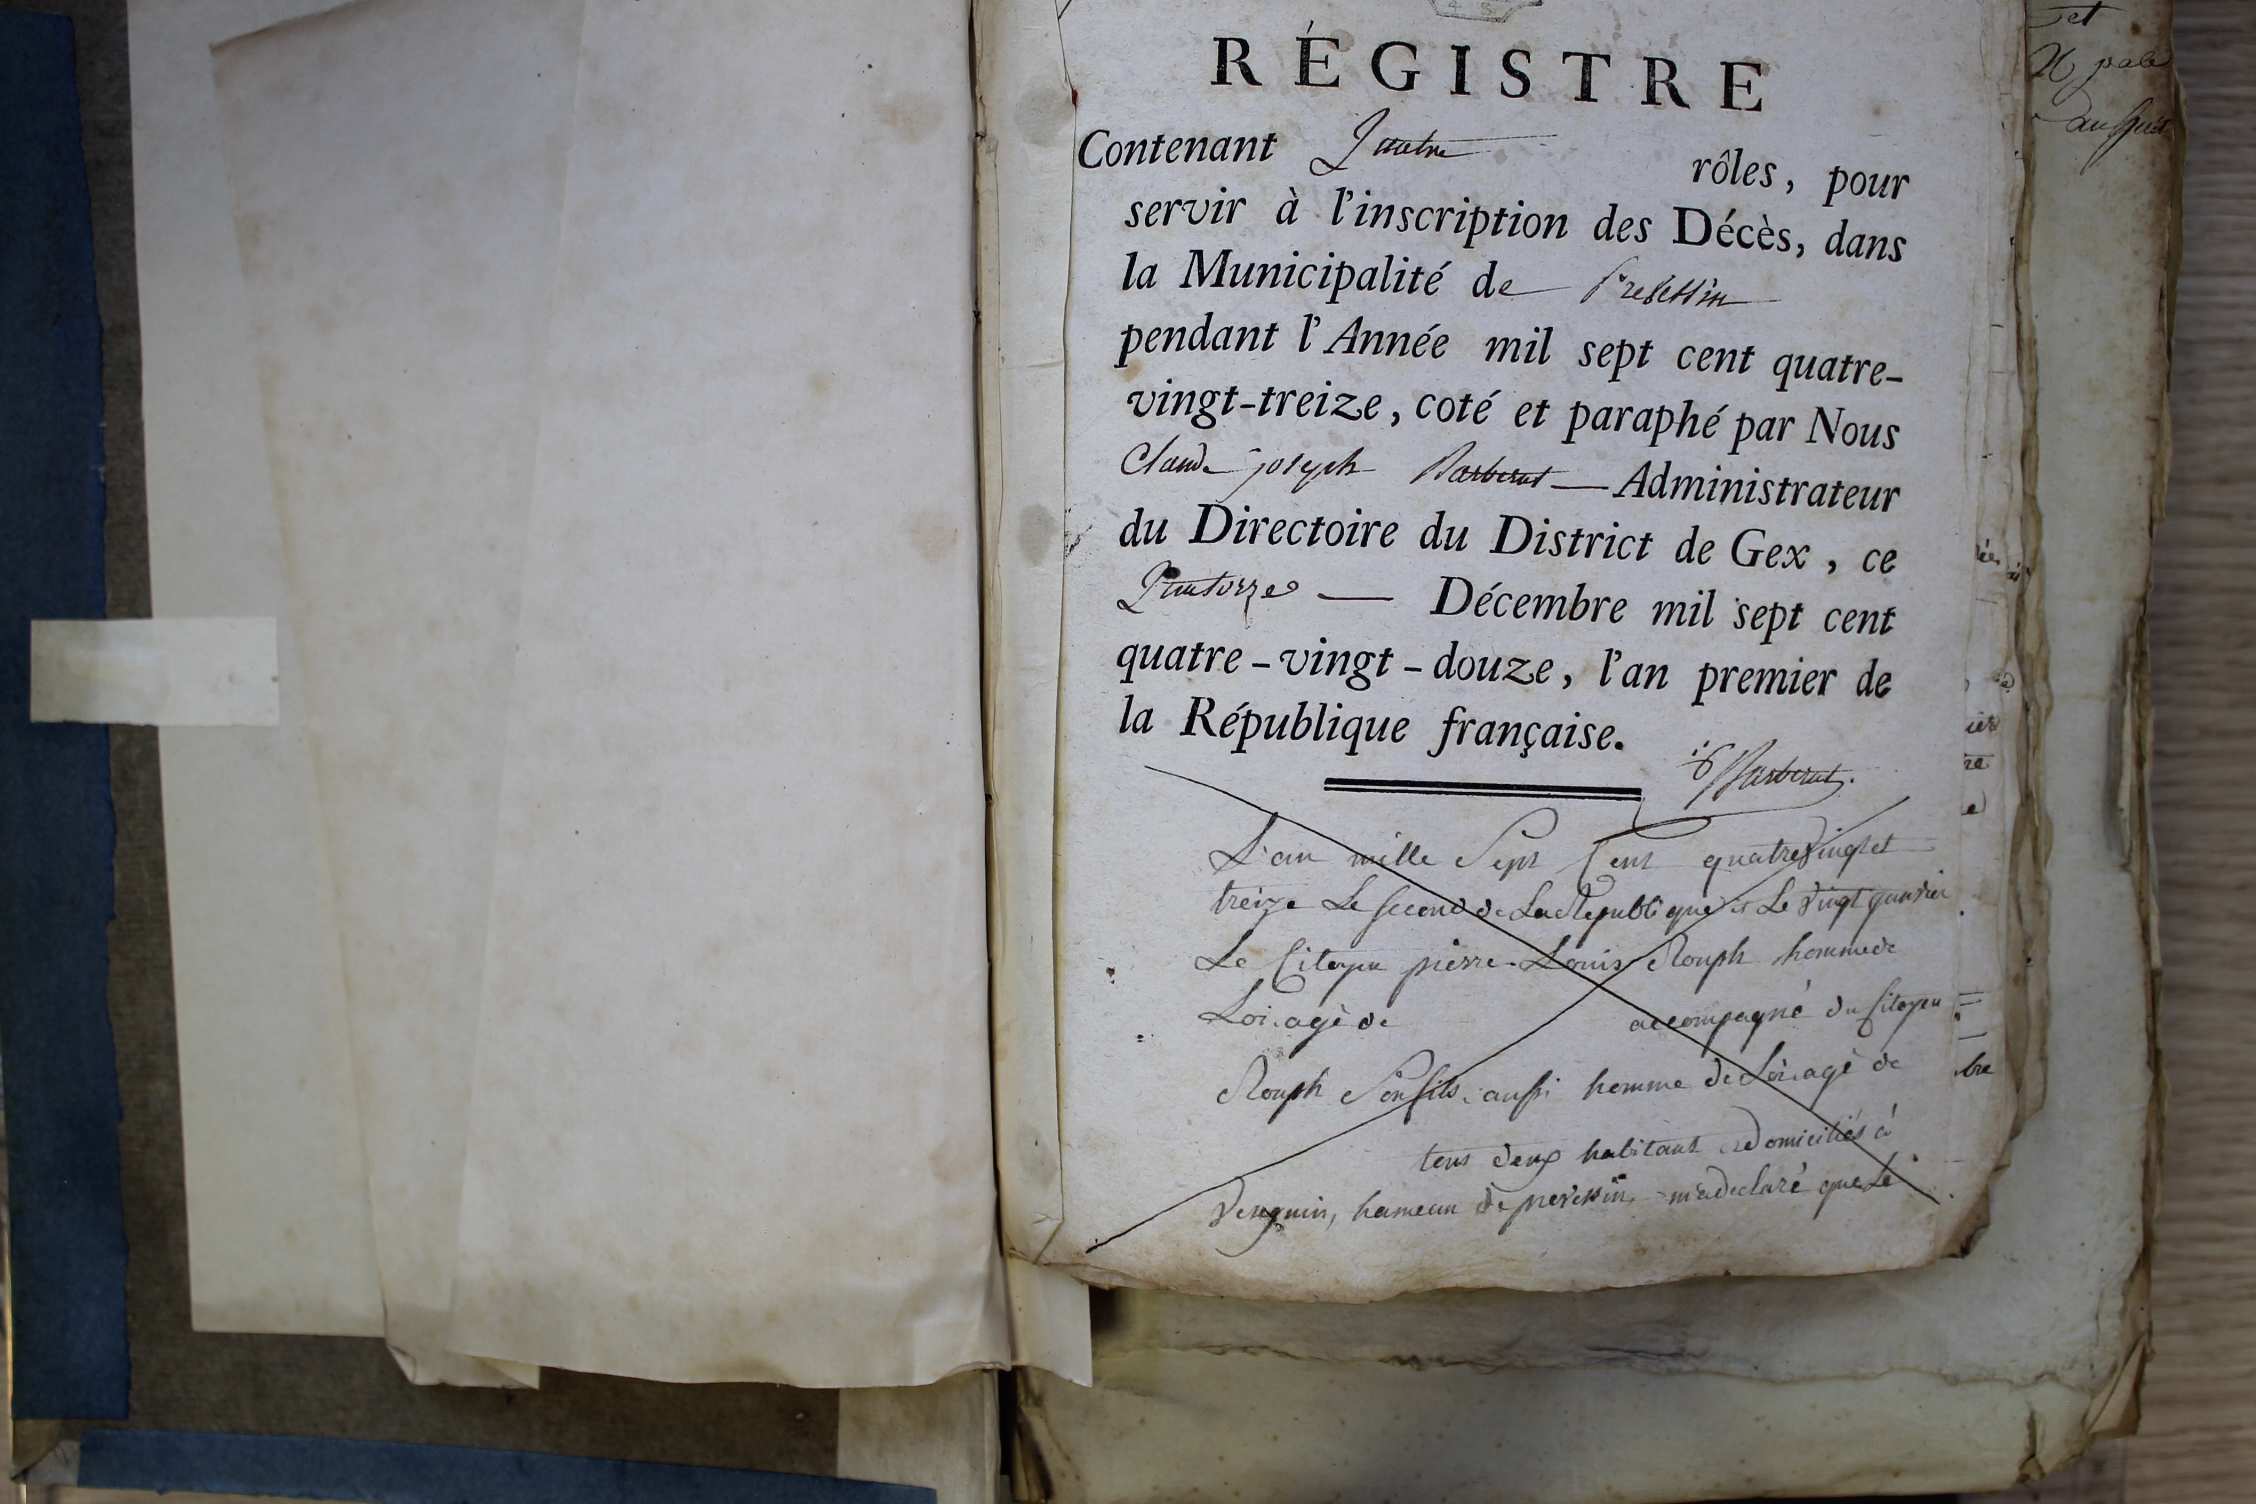 RÉGISTRE
Contenant Quatre rôles, pour
servir à l'inscription des Décès, dans
la Municipalité de Prevessin
pendant l'Année mil sept cent quatre-
vingt-treize, coté et paraphé par Nous
Claude joseph Barberat — Administrateur
du Directoire du District de Gex, ce
Quatorze — Décembre mil sept cent
quatre-vingt-douze, l'an premier de
la République française.
Barberat.
L'an mille Sept Cent quatrevingt et
treize Le second de La Republique et Le vingt janvier
Le Citoyen pierre Louis Rouph homme de
Loi. agé de accompagné du Citoyen
Rouph Son fils. aussi homme de Loi. agé de
tous deux habitant domiciliés à
hameau de prevessin, m'a declaré que Le
et